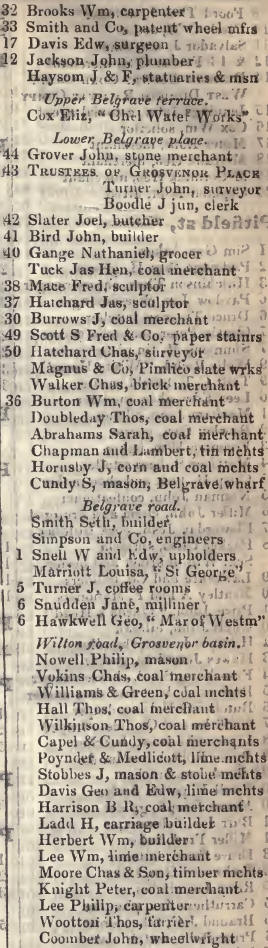 32 Brooks Wm, carpenter
33 Smith and Co, patent wheel mfrs
17 Davis Edw, surgeon
12 Jackson John, plumber
Haysom J & F, statuaries & msn
Upper Belgrave terrace.
Cox Eliz, "Chel Water Works"
Lower Belgrave place.
44 Grover John, stone merchant
43 TRUSTEES OF GROSVENOR PLACE
Turner John, surveyor
Boodle J jun, clerk
42 Slater Joel, butcher
41 Bird John, builder
40 Gange Nathaniel, grocer
Tuck Jas Hen, coal merchant
38 Mace Fred, sculptor
37 Hatchard Jas, sculptor
30 Burrows J, coal merchant
49 Scott S Fred & Co, paper stainrs
50 Hatchard Chas, surveyor
Magnus & Co, Pimlico slate wrks
Walker Chas, brick merchant
36 Burton Wm, coal merchant
Doubleday Thos, coal merchant
Abrahams Sarah, coal merchant
Chapman and Lambert, tin mchts
Hornsby J, corn and coal mchts
Cundy S, mason, Belgrave wharf
Belgrave road.
Smith Seth, builder
Simpson and Co, engineers
1 Snell W and Edw, upholders
Marriott Louisa, "St George"
5 Turner J, coffee rooms
6 Snudden Jane, milliner
6 Hawkwell Geo, "Mar of Westm"
Wilton road, Grosvenor basin.
Nowell Philip, mason
Vokins Chas, coal merchant
Williams & Green, coal mchts
Hall Thos, coal merchant
Wilkinson Thos, coal merchant
Capel & Cundy, coal merchants
Poynder & Medlicott, lime mchts
Stobbes J, mason & stone mchts
Davis Geo and Edw, lime mchts
Harrison B R, coal merchant
Ladd H, carriage builder
Herbert Wm, builder
Lee Wm, lime merchant
Moore Chas & Son, timber mchts
Knight Peter, coal merchant
Lee Philip, carpenter
Wootton Thos, farrier
Coomber John, wheelwright